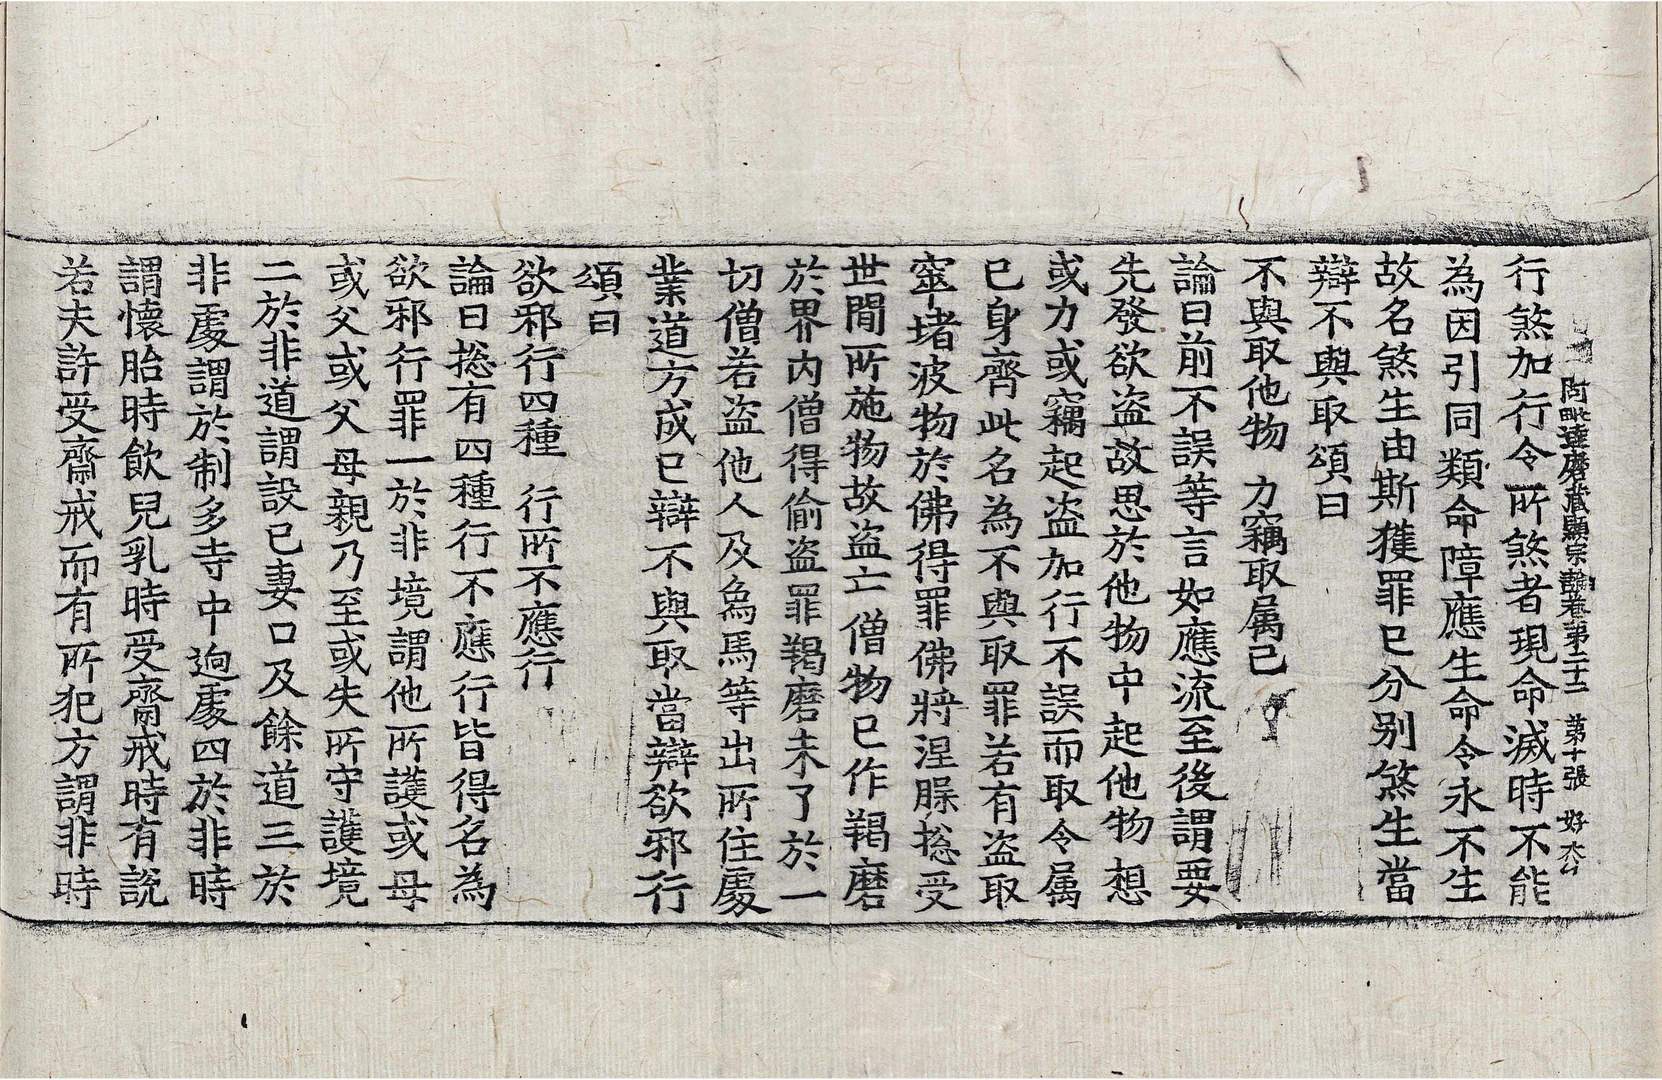 阿毗達磨藏顯宗論卷第二十二 第十張 好
行煞加行令所煞者現命滅時不能
為因引同類命障應生命令永不生
故名煞生由斯獲罪已分別煞生當
辯不與取頌曰
不與取他物 力竊取属己
論曰前不誤等言如應流至後謂要
先發欲盗故思於他物中起他物想
或力或竊起盗加行不誤而取令属
已身齊此名為不與取罪若有盗取
窣堵波物於佛得罪佛將涅槃揔受
世間所施物故盗亡僧物已作羯磨
於界内僧得偷盗罪羯磨未了於一
切僧若盗他人及爲馬等出所住處
業道方成已辯不與取當辯欲邪行
頌曰
欲邪行四種 行所不應行
論曰揔有四種行不應行皆得名為
欲邪行罪一於非境謂他所護或母
或父或父母親乃至或夫所守護境
二於非道謂設已妻口及餘道三於
非處謂於制多寺中逈處四於非時
謂懷胎時飲兒乳時受齋戒時有説
若夫許受齋戒而有所犯方謂非時